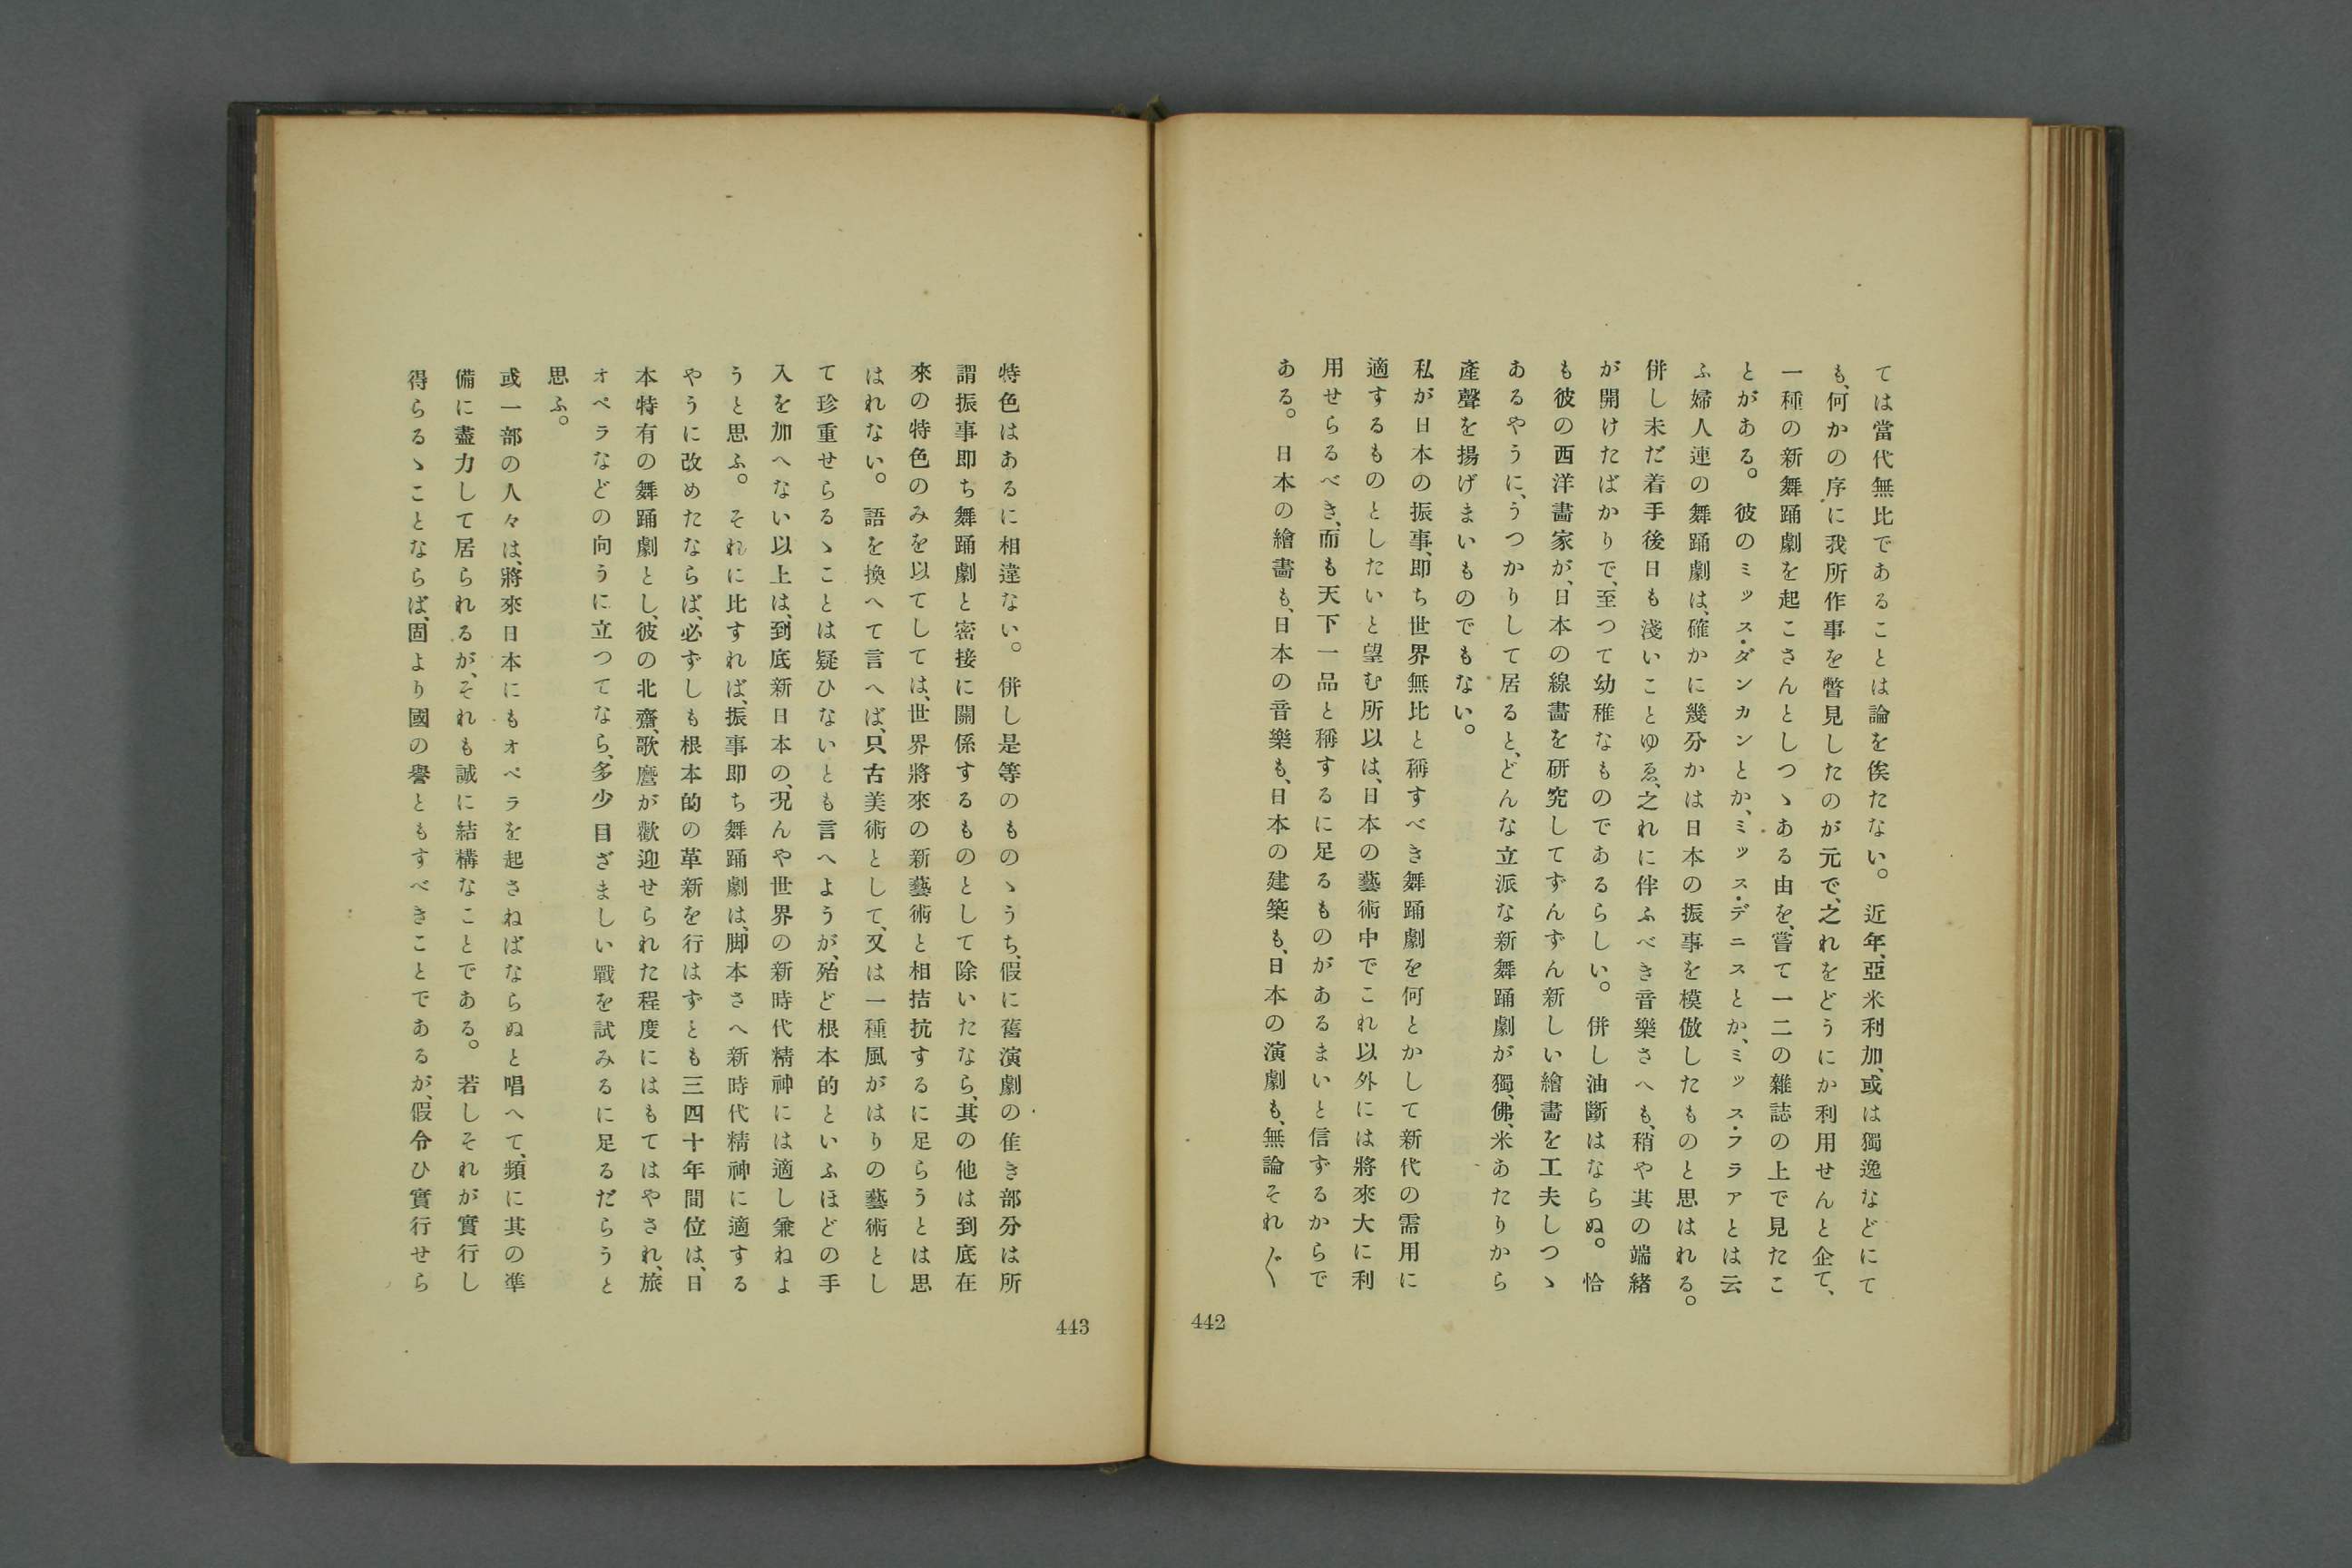 ては當代無比であることは論を俟たない。近年、亞米利加、或は獨逸などにて
も、何かの序に我所作事を瞥見したのが元で、之れをどうにか利用せんと企て、
一種の新舞踊劇を起こさんとしつゝある由を、嘗て一二の雜誌の上で見たこ
とがある。彼のミッス・ダンカンとか、ミッス・デニスとか、ミッス・フラアとは云
ふ婦人連の舞踊劇は、確かに幾分かは日本の振事を模倣したものと思はれる。
併し未だ着手後日も淺いことゆゑ、之れに伴ふべき音樂さへも、稍や其の端緒
が開けたばかりで、至つて幼稚なものであるらしい。併し油斷はならぬ。恰
も彼の西洋畵家が、日本の線畵を研究してずんずん新しい繪畵を工夫しつゝ
あるやうに、うつかりして居ると、どんな立派な新舞踊劇が獨、佛、米あたりから
產聲を揚げまいものでもない。
私が日本の振事、即ち世界無比と稱すべき舞踊劇を何とかして新代の需用に
適するものとしたいと望む所以は、日本の藝術中でこれ以外には將來大に利
用せらるべき、而も天下一品と稱するに足るものがあるまいと信ずるからで
ある。日本の繪畵も、日本の音樂も、日本の建築も、日本の演劇も、無論それ〴〵
442
特色はあるに相違ない。併し是等のものゝうち、假に舊演劇の隹き部分は所
謂振事即ち舞踊劇と密接に關係するものとして除いたなら、其の他は到底在
來の特色のみを以てしては、世界將來の新藝術と相拮抗するに足らうとは思
はれない。語を換へて言へば、只古美術として、又は一種風がはりの藝術とし
て珍重せらるゝことは疑ひないとも言へようが、殆ど根本的といふほどの手
入を加へない以上は、到底新日本の、况んや世界の新時代精神には適し兼ねよ
うと思ふ。それに比すれば、振事即ち舞踊劇は、脚本さへ新時代精神に適する
やうに改めたならば、必ずしも根本的の革新を行はずとも三四十年間位は、日
本特有の舞踊劇とし、彼の北齋、歌麿が歡迎せられた程度にはもてはやされ、旅
オペラなどの向うに立つてなら、多少目ざましい戰を試みるに足るだらうと
思ふ。
或一部の人々は、將來日本にもオペラを起さねばならぬと唱へて、頻に其の準
備に盡力して居られるが、それも誠に結構なことである。若しそれが實行し
得らるゝことならば、固より國の譽ともすべきことであるが、假令ひ實行せら
443